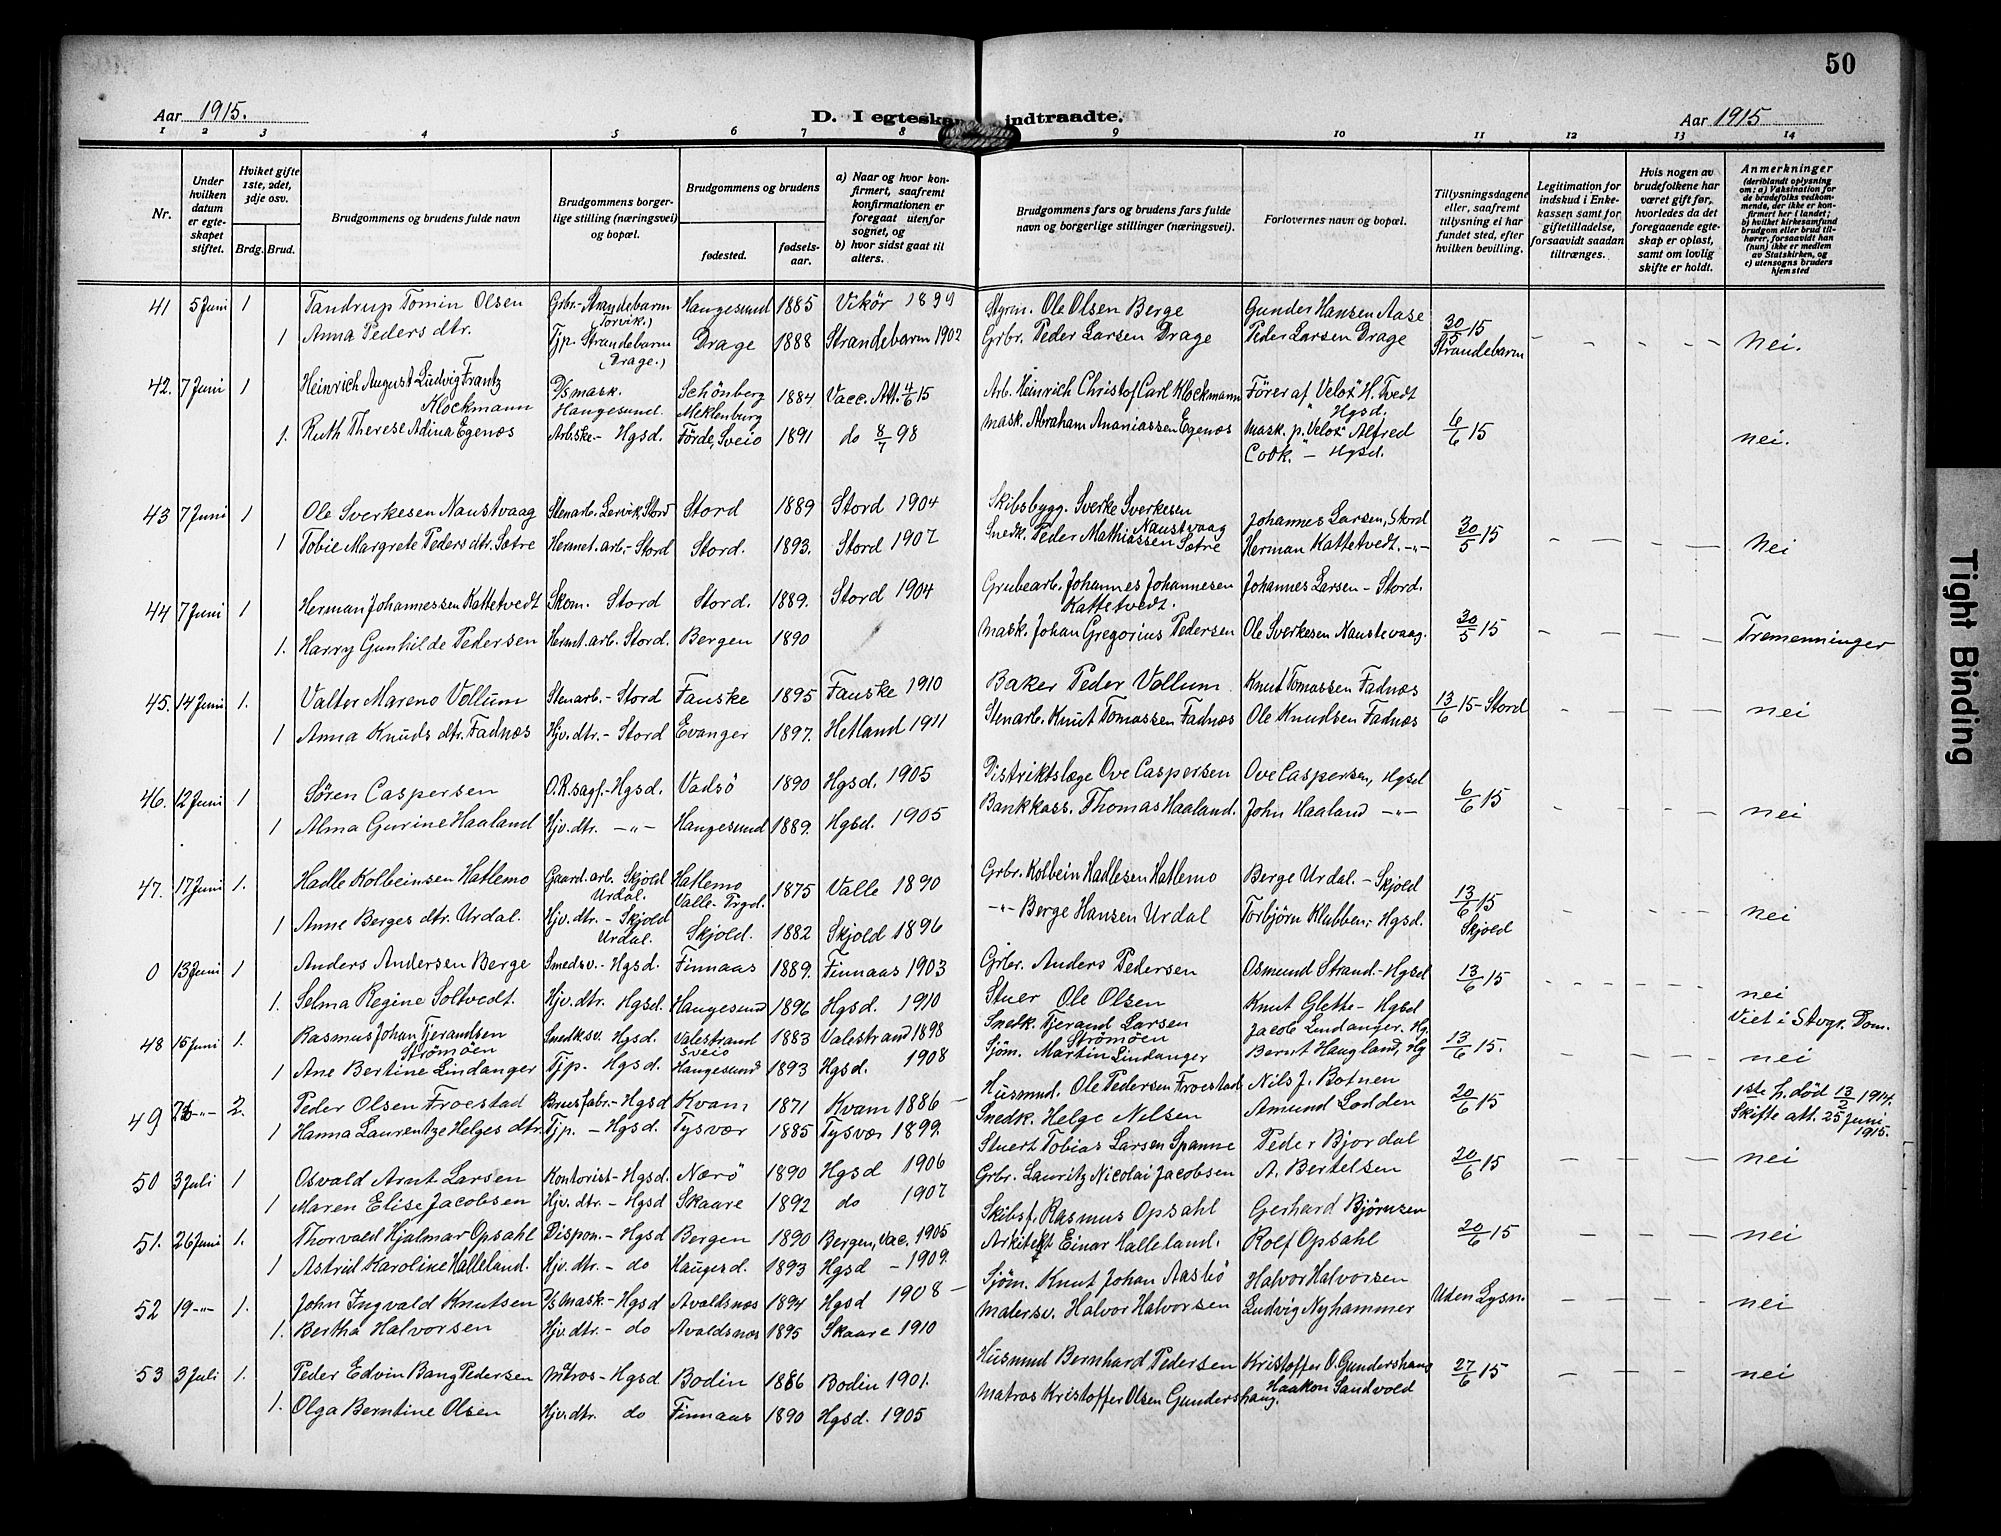 50
Aar 1915.
D. I egteska indtraadte.
Aar 1915
1 2 3 4 5 6 7 8 9 10 11 12 13 14
Nr.
Under hvilken datum er egteskapet stiftet.
Hvilket gifte 1ste, 2det, 3dje osv.
Brdg. Brud.
Brudgommens og brudens fulde navn
Brudgommens borgerlige stilling (næringsvei) og bopæl.
Brudgommens og brudens
fødested.
fødselsaar.
a) Naar og hvor konfirmert, saafremt konfirmationen er foregaat utenfor sognet, og b) hvor sidst gaat til alters.
Brudgommens fars og brudens fars fulde navn og borgerlige stillinger (næringsvei).
Forlovernes navn og bopæl.
Tillysningsdagene eller, saafremt tillysning ei har fundet sted, efter hvilken bevilling.
Legitimation for indskud i Enkekassen samt for giftetilladelse, forsaavidt saadan tiltrænges.
Hvis nogen av brudefolkene har været gift før, hvorledes da det foregaaende egteskap er opløst, samt om lovlig skifte er holdt.
Anmerkninger (deriblandt oplysning om: a) Vaksination for de brudefolks vedkommende, der ikke er konfirmert her i landet; b) hvilket kirkesamfund brudgom eller brud tilhører, forsaavidt han (hun) ikke er medlem av Statskirken, og c) utensogns bruders hjemsted
41 5 Juni 1 Tandrup Tomin Olsen Grbr.- Strandebarm (Torvik.) Haugesund 1885 Vikör 1899 Styrm. Ole Olsen Berge Gunder Hansen Aase 30/5 15 Strandebarm
1 Anna Peders dtr. Tjp. Strandebarm (Drage.) Drage 1888 Strandebarm 1902 Grbr. Peder Larsen Drage Peder Larsen Drage - - - - - Nei.
42. 7 Juni 1 Heinrich August Ludvig Frantz Klockmann D/S mask. Haugesund. Schönberg Meklenburg 1884 Vacc. Att. 4/6 15 Arb. Heinrich Christof Carl Klockmann Förer af "Velox" H. Tvedt Hgsd.
1. Ruth Therese Adina Egenæs Arb.ske.- Hgsd. Förde, Sveio 1891 do 8/7 98 Mask. Abraham Ananiassen Egenæs Mask. p. "Velox" Alfred Cook. - Hgsd. 6/6 15 nei.
43 7 Juni 1 Ole Sverkesen Naustvaag Stenarb. Lervik, Stord Stord 1889 Stord 1904 Skibsbygg. Sverke Sverkesen Naustvaag Johannes Larsen, Stord 30/5 15
1 Tobie Margrete Peders dtr. Sætre Hermet.arb.- Stord Stord. 1893. Stord 1907 Snedk. Peder Mathiassen Sætre Herman Kattetvedt. -"- - - - - Nei
44 7 Juni 1 Herman Johannessen Kattetvedt Skom. Stord Stord. 1889. Stord 1904 Grubearb. Johannes Johannesen Kattetvedt. Johannes Larsen - Stord.
1. Harry Gunhilde Pedersen Hermet.arb. Stord. Bergen 1890 Mask. Johan Gregorius Pedersen Ole Sverkesen Naustevaag. 30/5 15 - - - - Tremenninger
45. 14 Juni 1. Valter Mareno Vollum Stenarb.- Stord Fauske 1895 Fauske 1910 Baker Peder Vollum Knut Tomassen Fadnæs 13/6 15 - Stord
1 Anna Knuds dtr. Fadnæs Hjv. dtr.- Stord Evanger 1897. Hetland 1911 Stenarb. Knut Tomassen Fadnæs Ole Knudsen Fadnæs - - - - nei
46. 12 Juni 1 Søren Caspersen O.R.sagf.- Hgsd. Vadsö 1890 Hgsd. 1905 Distriktslæge Ove Caspersen Ove Caspersen, Hgsd 6/6 15
1 Alma Gurine Haaland Hjv. dtr. -"- Haugesund 1889. Hgsd. 1905 Bankkass. Thomas Haaland. John Haaland -"- - - - nei
47. 17 Juni 1. Hadle Kolbeinsen Hatlemo Gaard.arb. Skjold Urdal. Hatlemo Valle - Trgd. 1875 Valle 1890 Grbr. Kolbein Hadlesen Hatlemo Berge Urdal. - Skjold 13/6 15 Skjold
1 Anne Berges dtr. Urdal. Hjv. dtr. - Skjold Urdal. Skjold. 1882 Skjold 1896 -"- Berge Hansen Urdal Torbjörn Klubben,- Hgsd. - - - - nei
0 13 Juni 1 Anders Andersen Berge Smedsv.- Hgsd. Finnaas 1889. Finnaas 1903 Grbr. Anders Pedersen Osmund Strand.- Hgsd 13/6 15
1. Selma Regine Soltvedt. Hjv. dtr. Hgsd. Haugesund 1896 Hgsd. 1910 Stuer Ole Olsen Knut Glette - Hgsd nei Viet i Stvgr. Dom.
48 15 Juni 1. Rasmus Johan Tjerandsen Strömöen Snedksv. Hgsd. Valestrand Sveio 1883 Valestrand 1898 Snedk. Tjerand Larsen Strömöen Jacob Lindanger. Hg. 13/6 15.
1 Ane Bertine Lindanger Tjp. Hgsd. Haugesund 1893 Hgsd. 1908 Sjöm. Martin Lindanger Bernt Haugland, Hg - - - nei
49 -"- 2. Peder Olsen Froestad Brusfabr.- Hgsd Kvam 1871 Kvam 1886 - Husmnd. Ole Pedersen Froestad Nils J. Botnen 20/6 15 1ste h. död 13/2 1914. Skifte att. 25 Juni 1915.
1 Hanna Laurentze Helges dtr. Tjp. - Hgsd. Tysvær 1885 Tysvær 1899. Snedk. Helge Nilsen Amund Lodden
50 3 Juli 1 Osvald Arnt Larsen Kontorist - Hgsd. Nærö 1890 Hgsd 1906 Stuert Tobias Larsen Spanne Peder Bjordal 20/6 15 - - - - nei
1 Maren Elise Jacobsen Hjv. dtr. - Hgsd Skaare 1892 do 1907 Grbr. Lauritz Nicolai Jacobsen A. Bertelsen
51. 26 Juni 1. Thorvald Hjalmar Opsahl Dispon.- Hgsd Bergen 1890 Bergen, vac. 1905 Skibsf. Rasmus Opsahl Gerhard Björnsen 20/6 15 - - - - nei
1 Astrid Karoline Halleland. Hjv. dtr. - do Haugesd. 1893 Hgsd - 1909. Arkitekt Einar Halleland. Rolf Opsahl
52 19 -"- 1. John Ingvald Knutsen D/S mask - Hgsd Avaldsnæs 1894 Hgsd 1908 - Sjöm. Knut Johan Aasbö Halvor Halvorsen Uden Lysn. - - - - nei
1. Bertha Halvorsen Hjv. dtr. - do Avaldsnæs 1895 Skaare 1910 Malersv. Halvor Halvorsen Ludvig Nyhammer
53 3 Juli 1. Peder Edvin Bang Pedersen Matros - Hgsd Bodin 1886 Bodin 1901. Husmnd Bernhard Pedersen Kristoffer O. Gundershaug 27/6 15 - - - nei
1. Olga Berntine Olsen Hjv. dtr. do Finnaas 1890 Hgsd. 1905 Matros Kristoffer Olsen Gundershaug. Haakon Sandvold
Tight Binding